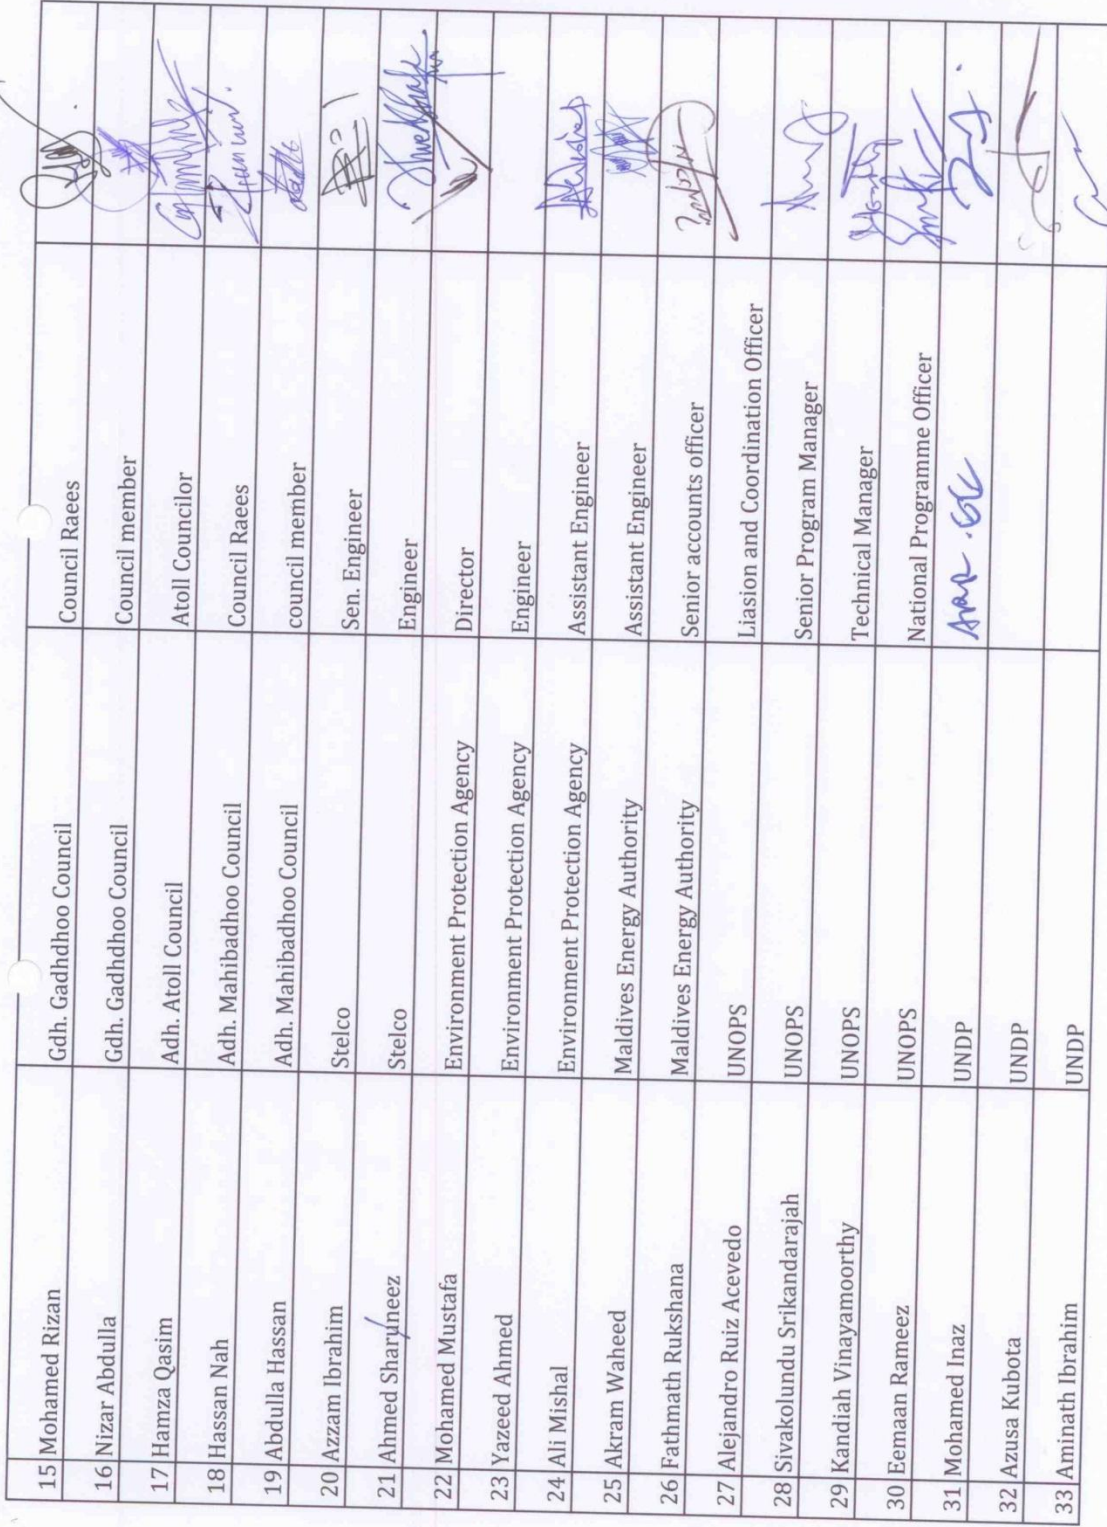 15 Mohamed Rizan Gdh. Gadhdhoo Council Council Raees
16 Nizar Abdulla Gdh. Gadhdhoo Council Council member
17 Hamza Qasim Adh. Atoll Council Atoll Councilor
18 Hassan Nah Adh. Mahibadhoo Council Council Raees
19 Abdulla Hassan Adh. Mahibadhoo Council council member
20 Azzam Ibrahim Stelco Sen. Engineer
21 Ahmed Sharuneez Stelco Engineer
22 Mohamed Mustafa Environment Protection Agency Director
23 Yazeed Ahmed Environment Protection Agency Engineer
24 Ali Mishal Environment Protection Agency Assistant Engineer
25 Akram Waheed Maldives Energy Authority Assistant Engineer
26 Fathmath Rukshana Maldives Energy Authority Senior accounts officer
27 Alejandro Ruiz Acevedo UNOPS Liasion and Coordination Officer
28 Sivakolundu Srikandarajah UNOPS Senior Program Manager
29 Kandiah Vinayamoorthy UNOPS Technical Manager
30 Eemaan Rameez UNOPS National Programme Officer
31 Mohamed Inaz UNDP
32 Azusa Kubota UNDP
33 Aminath Ibrahim UNDP